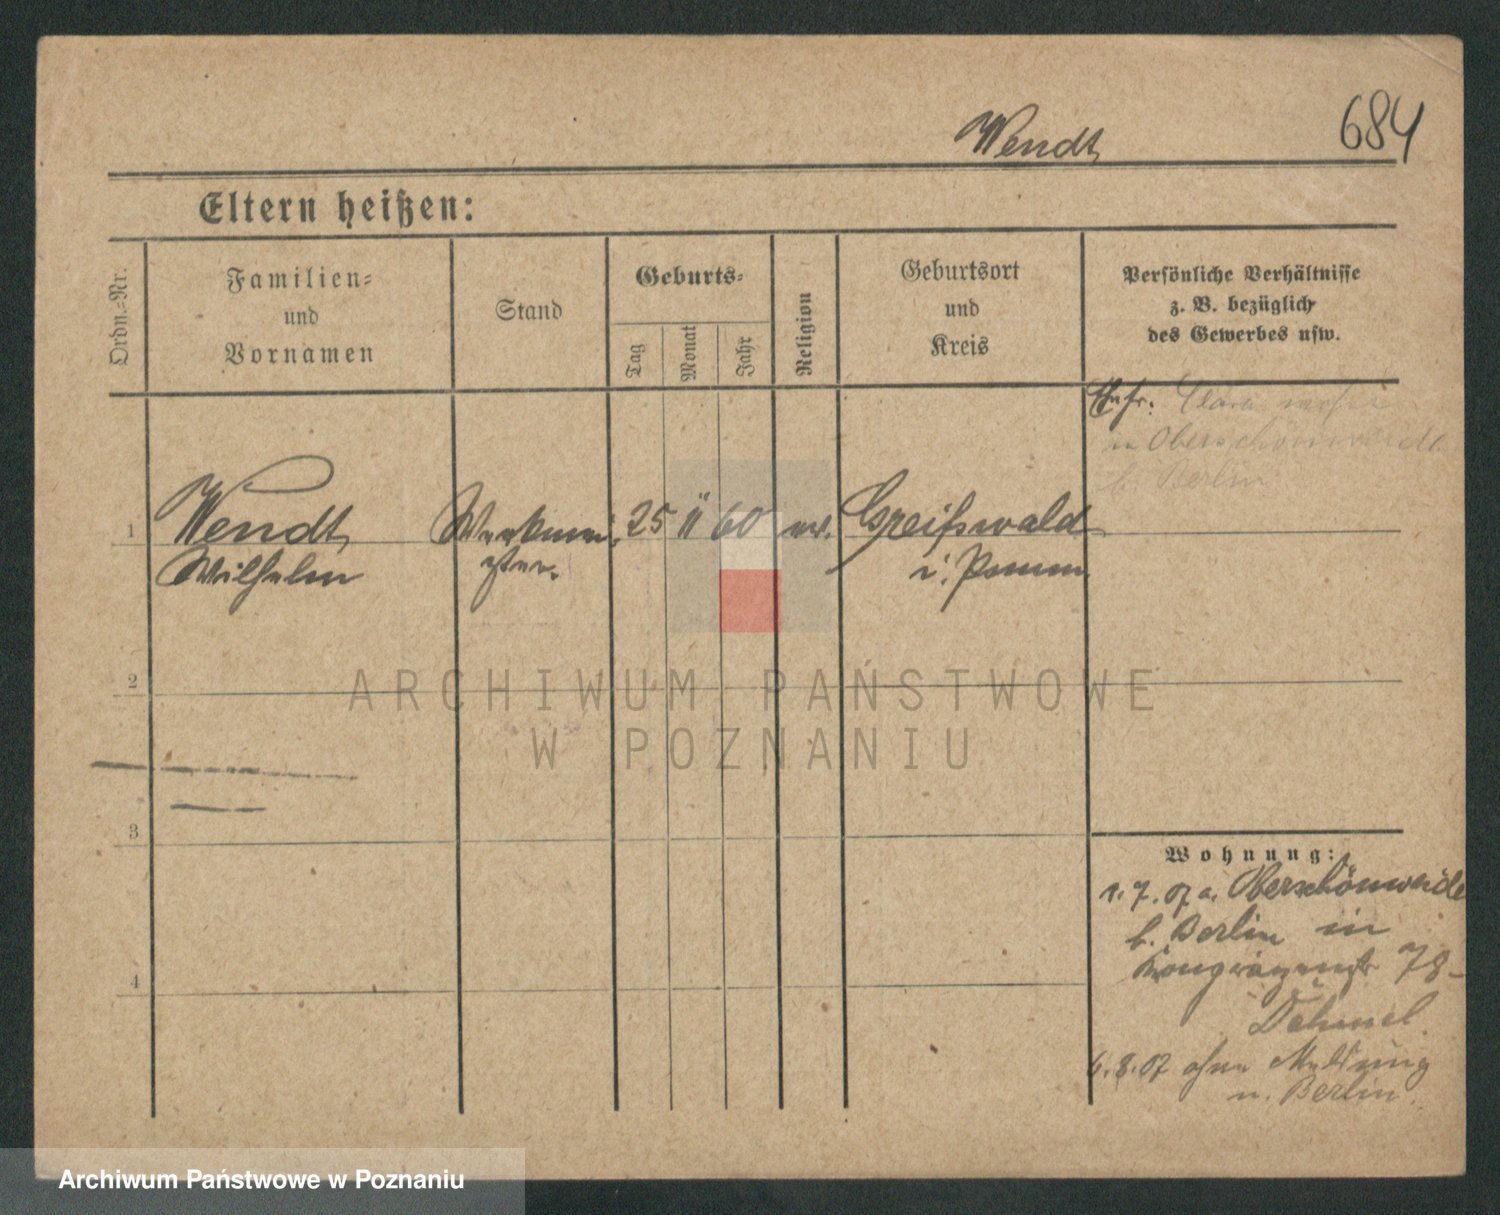 Wendt
684
Eltern heißen:
Ordn.-Nr.
Familien-
und
Vornamen
Stand
Geburts-
Tag
Monat
Jahr
Religion
Geburtsort
und
Kreis
Persönliche Verhältnisse
z. B. bezüglich
des Gewerbes usw.
Ehefr. Clara
in Oberschönweide
b. Berlin
1
Wendt
Wilhelm
Werkmei-
ster.
25
11
60
ev.
Greifswald
i. Pomm.
2
3
4
ARCHIWUM PAŃSTWOWE
W POZNANIU
Wohnung:
1. 7. 07 a. Oberschönweide
b. Berlin in
78-
6. 8. 07 ohne Meldung
n. Berlin.
Archiwum Państwowe w Poznaniu